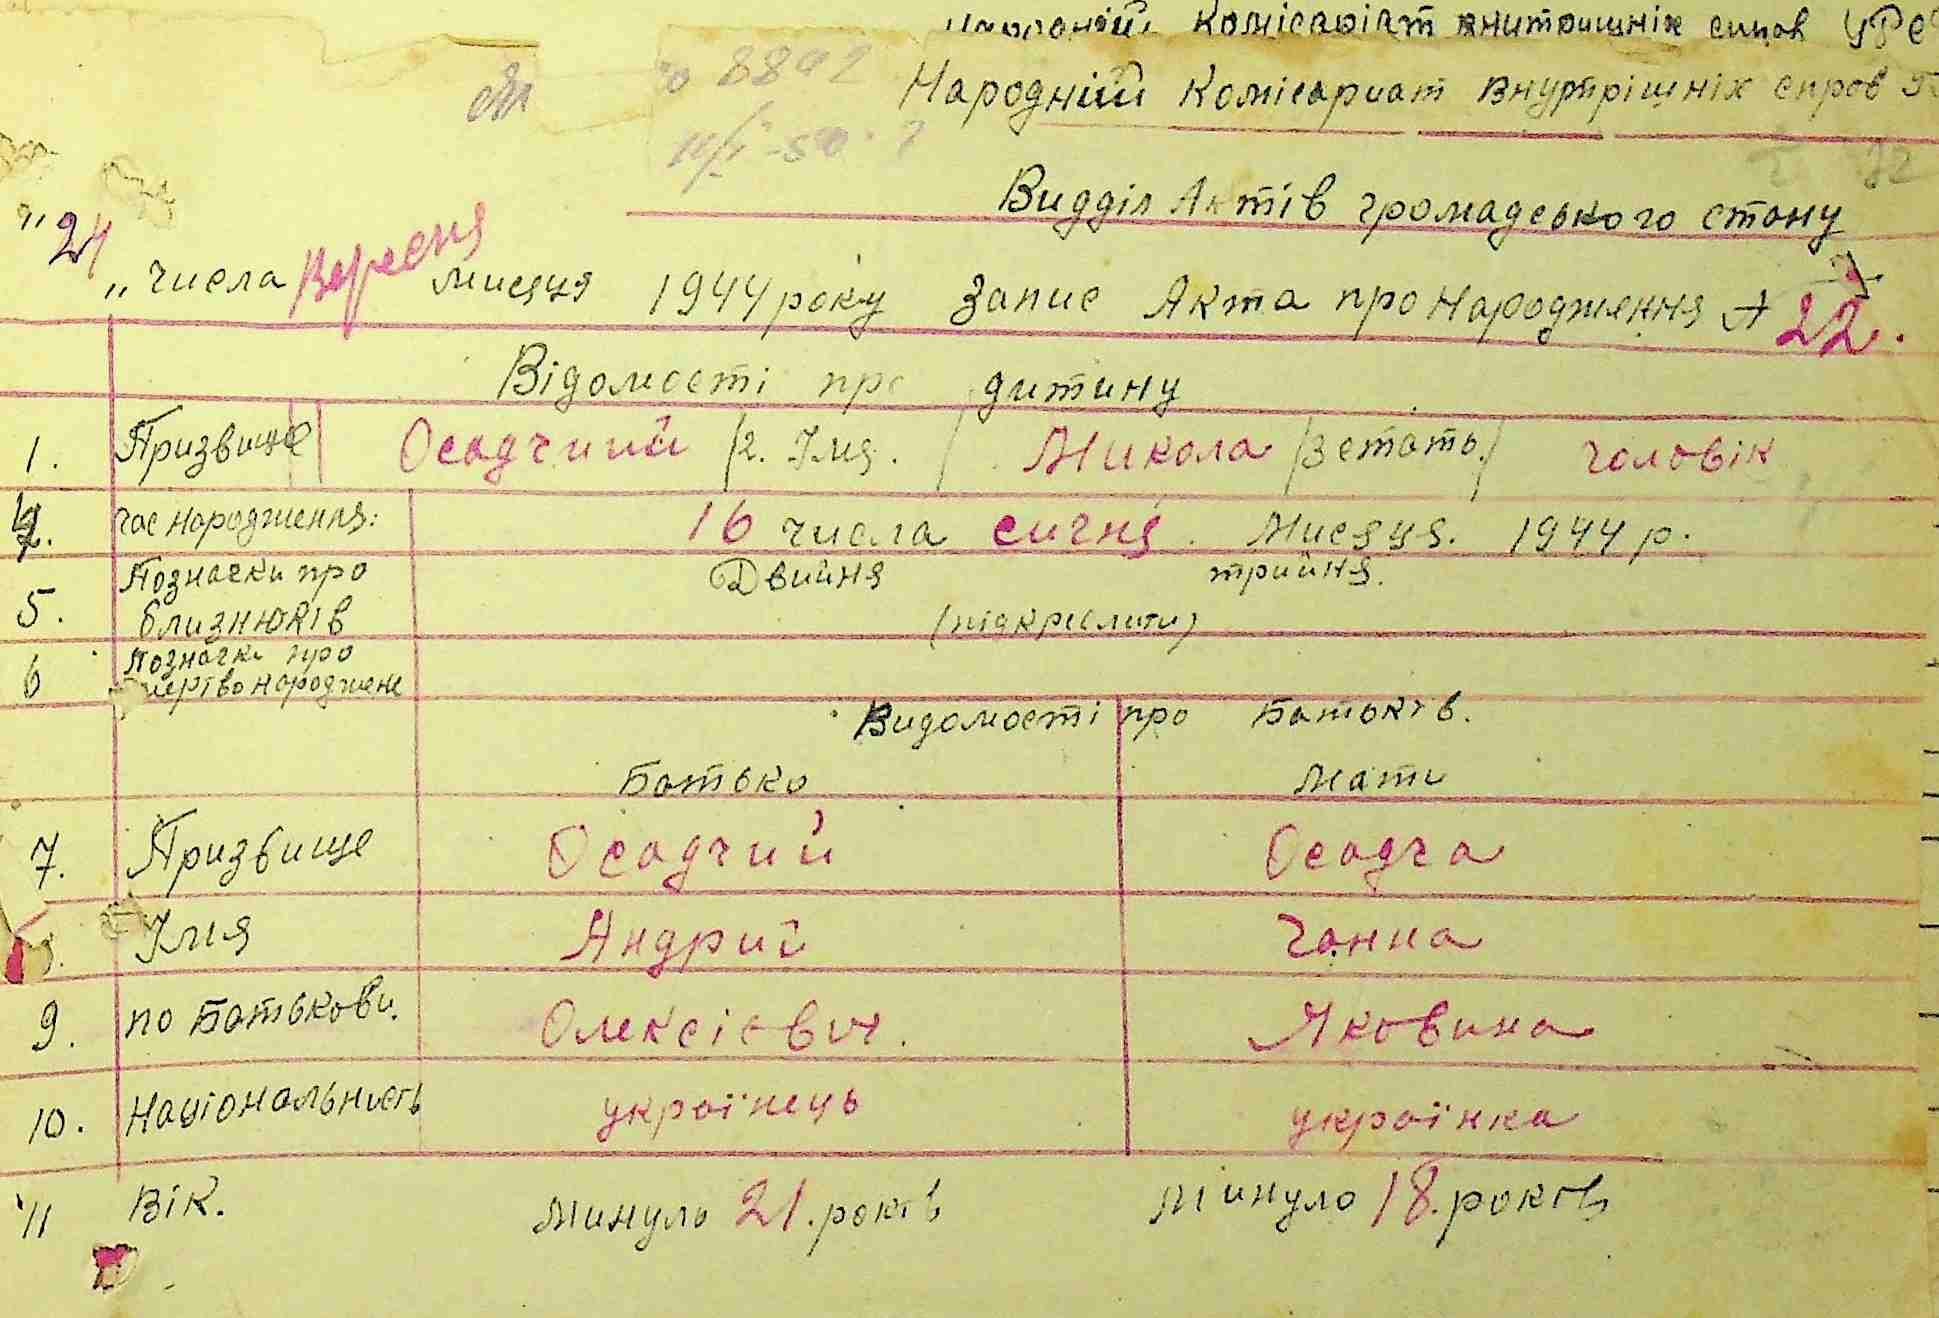 Комісаріат внутрішніх УРС
Народній Комісариат внутрішніх спров
8892
Видділ Актів громадського стану
"24" числа Вересня мисяця 1944 року Запис Акта про народження № 22.
Відомості про дитину
1. Призвище Осадчиий 2. Імя. Микола 3 стать. Чоловік
4. час народження: 16 числа сичня. Мисяця. 1944 р.
5. Позначки про близнюків Двийня трийня.
(підкреслити)
6 Позначки про мертвонароджене
Видомості про Батьків.
Батько Мати
7. Призвище Осадчий Осадча
Імя Андрий Ганна
9. по Батькови. Олексієвич. Яковина
10. Національність українець українка
11 Вік. Минуло 21. років Минуло 18. років